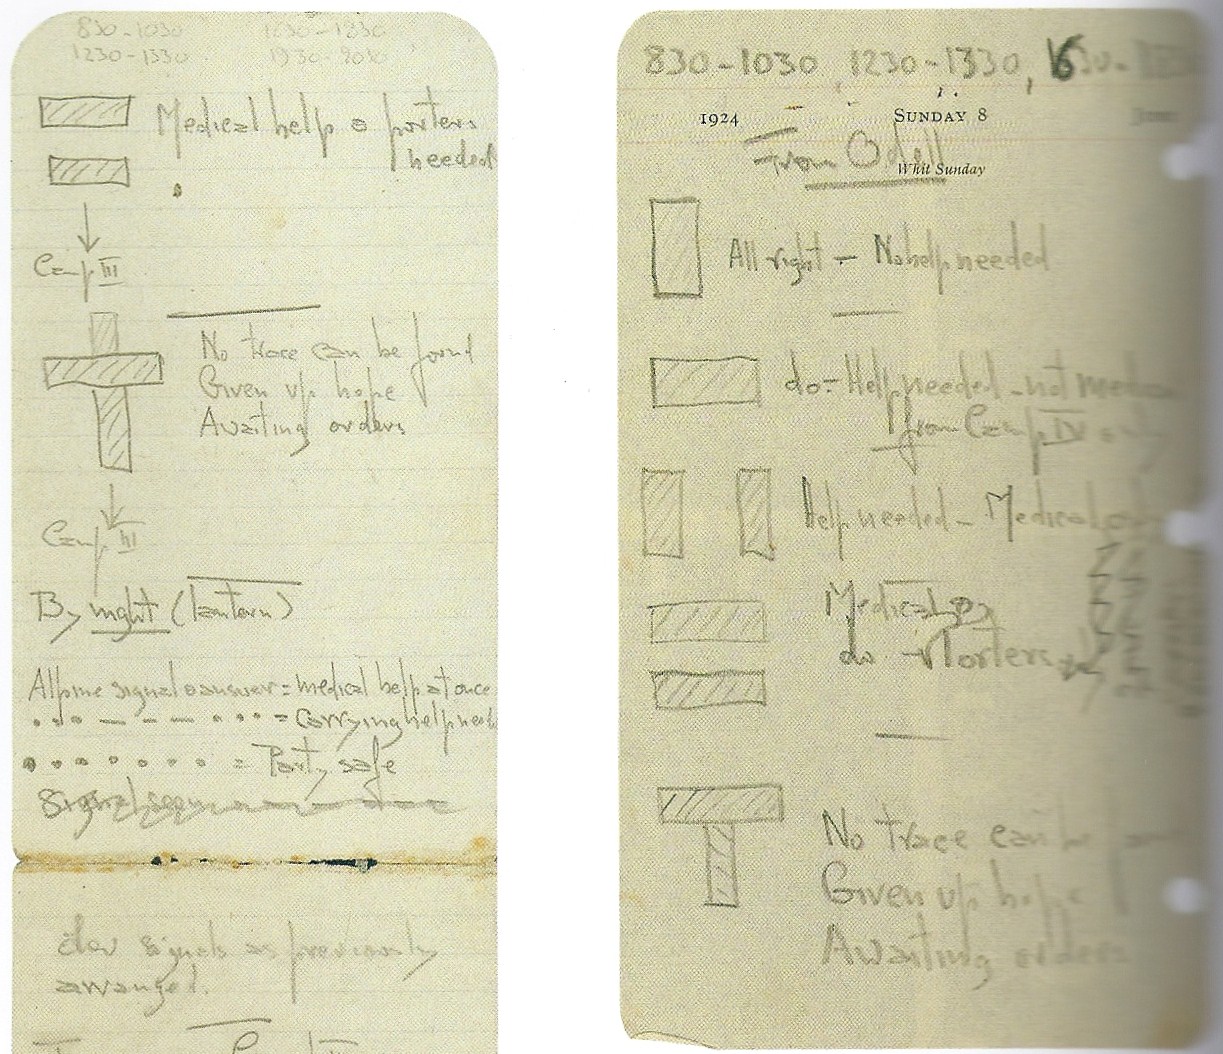 830-1030
1230-1330
Medical help & porters
needed
Camp III
No trace can be found
Given up hope
Awaiting orders
Camp III
By night (lantern)
Alpine signal & answer = medical help at once
• • • — — — • • • = Carrying help
• • • • • • • = Party safe
signals as previously
arranged.
830-1030, 1230-1330,
1924 SUNDAY 8
From Odell
Whit Sunday
All right - No help needed
do - Help needed - not
from Camp IV only
Help needed - Medical
Medical &
do Porters
No trace can be
Given up hope
Awaiting orders